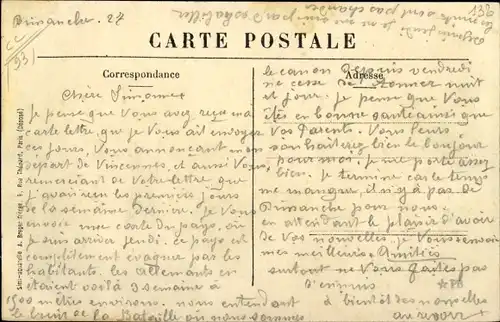 Dimanche. 27
132
depuis jeudi je ne me suis pas deshabiller
CARTE POSTALE
Correspondance
Adresse
Chère Simonne
je pense que Vous avez reçu ma
carte lettre, que je Vous ait envoyer
ces jours, Vous annoncant mon
départ de Vincennes, et aussi Vous
remerciant de Votre lettre que
j'avais reçu les premiers jours
de la semaine dernière. Je Vous
envoie une carte du pays, où
je suis arriver jeudi. Ce pays est
complètement évaquer par les
habitants. les allemants en
étaient voilà 3 semaine à
1500 mètres environs. nous entendont
le bruit de la Bataille où nous sommes
le canon Depuis vendredi
ne cesse de tonner nuit
et jour. je pense que Vous
êtes en bonne santé ainsi que
Vos Parents. Vous leurs
souhaiterez bien le bonjour
pour moi. je me porte assez
bien. je termine car le temps
me manque, il n'y a pas de
Dimanche pour nous.
en attendant le plaisir d'avoir
de Vos nouvelles. je Vous envoie
mes meilleurs Amitiés
surtout ne Vous faites pas
d'ennuis
à bientôt des nouvelles
au revoir
Semi-aquarelle A. Breger Frères. 9, Rue Thénard, Paris (Déposé)